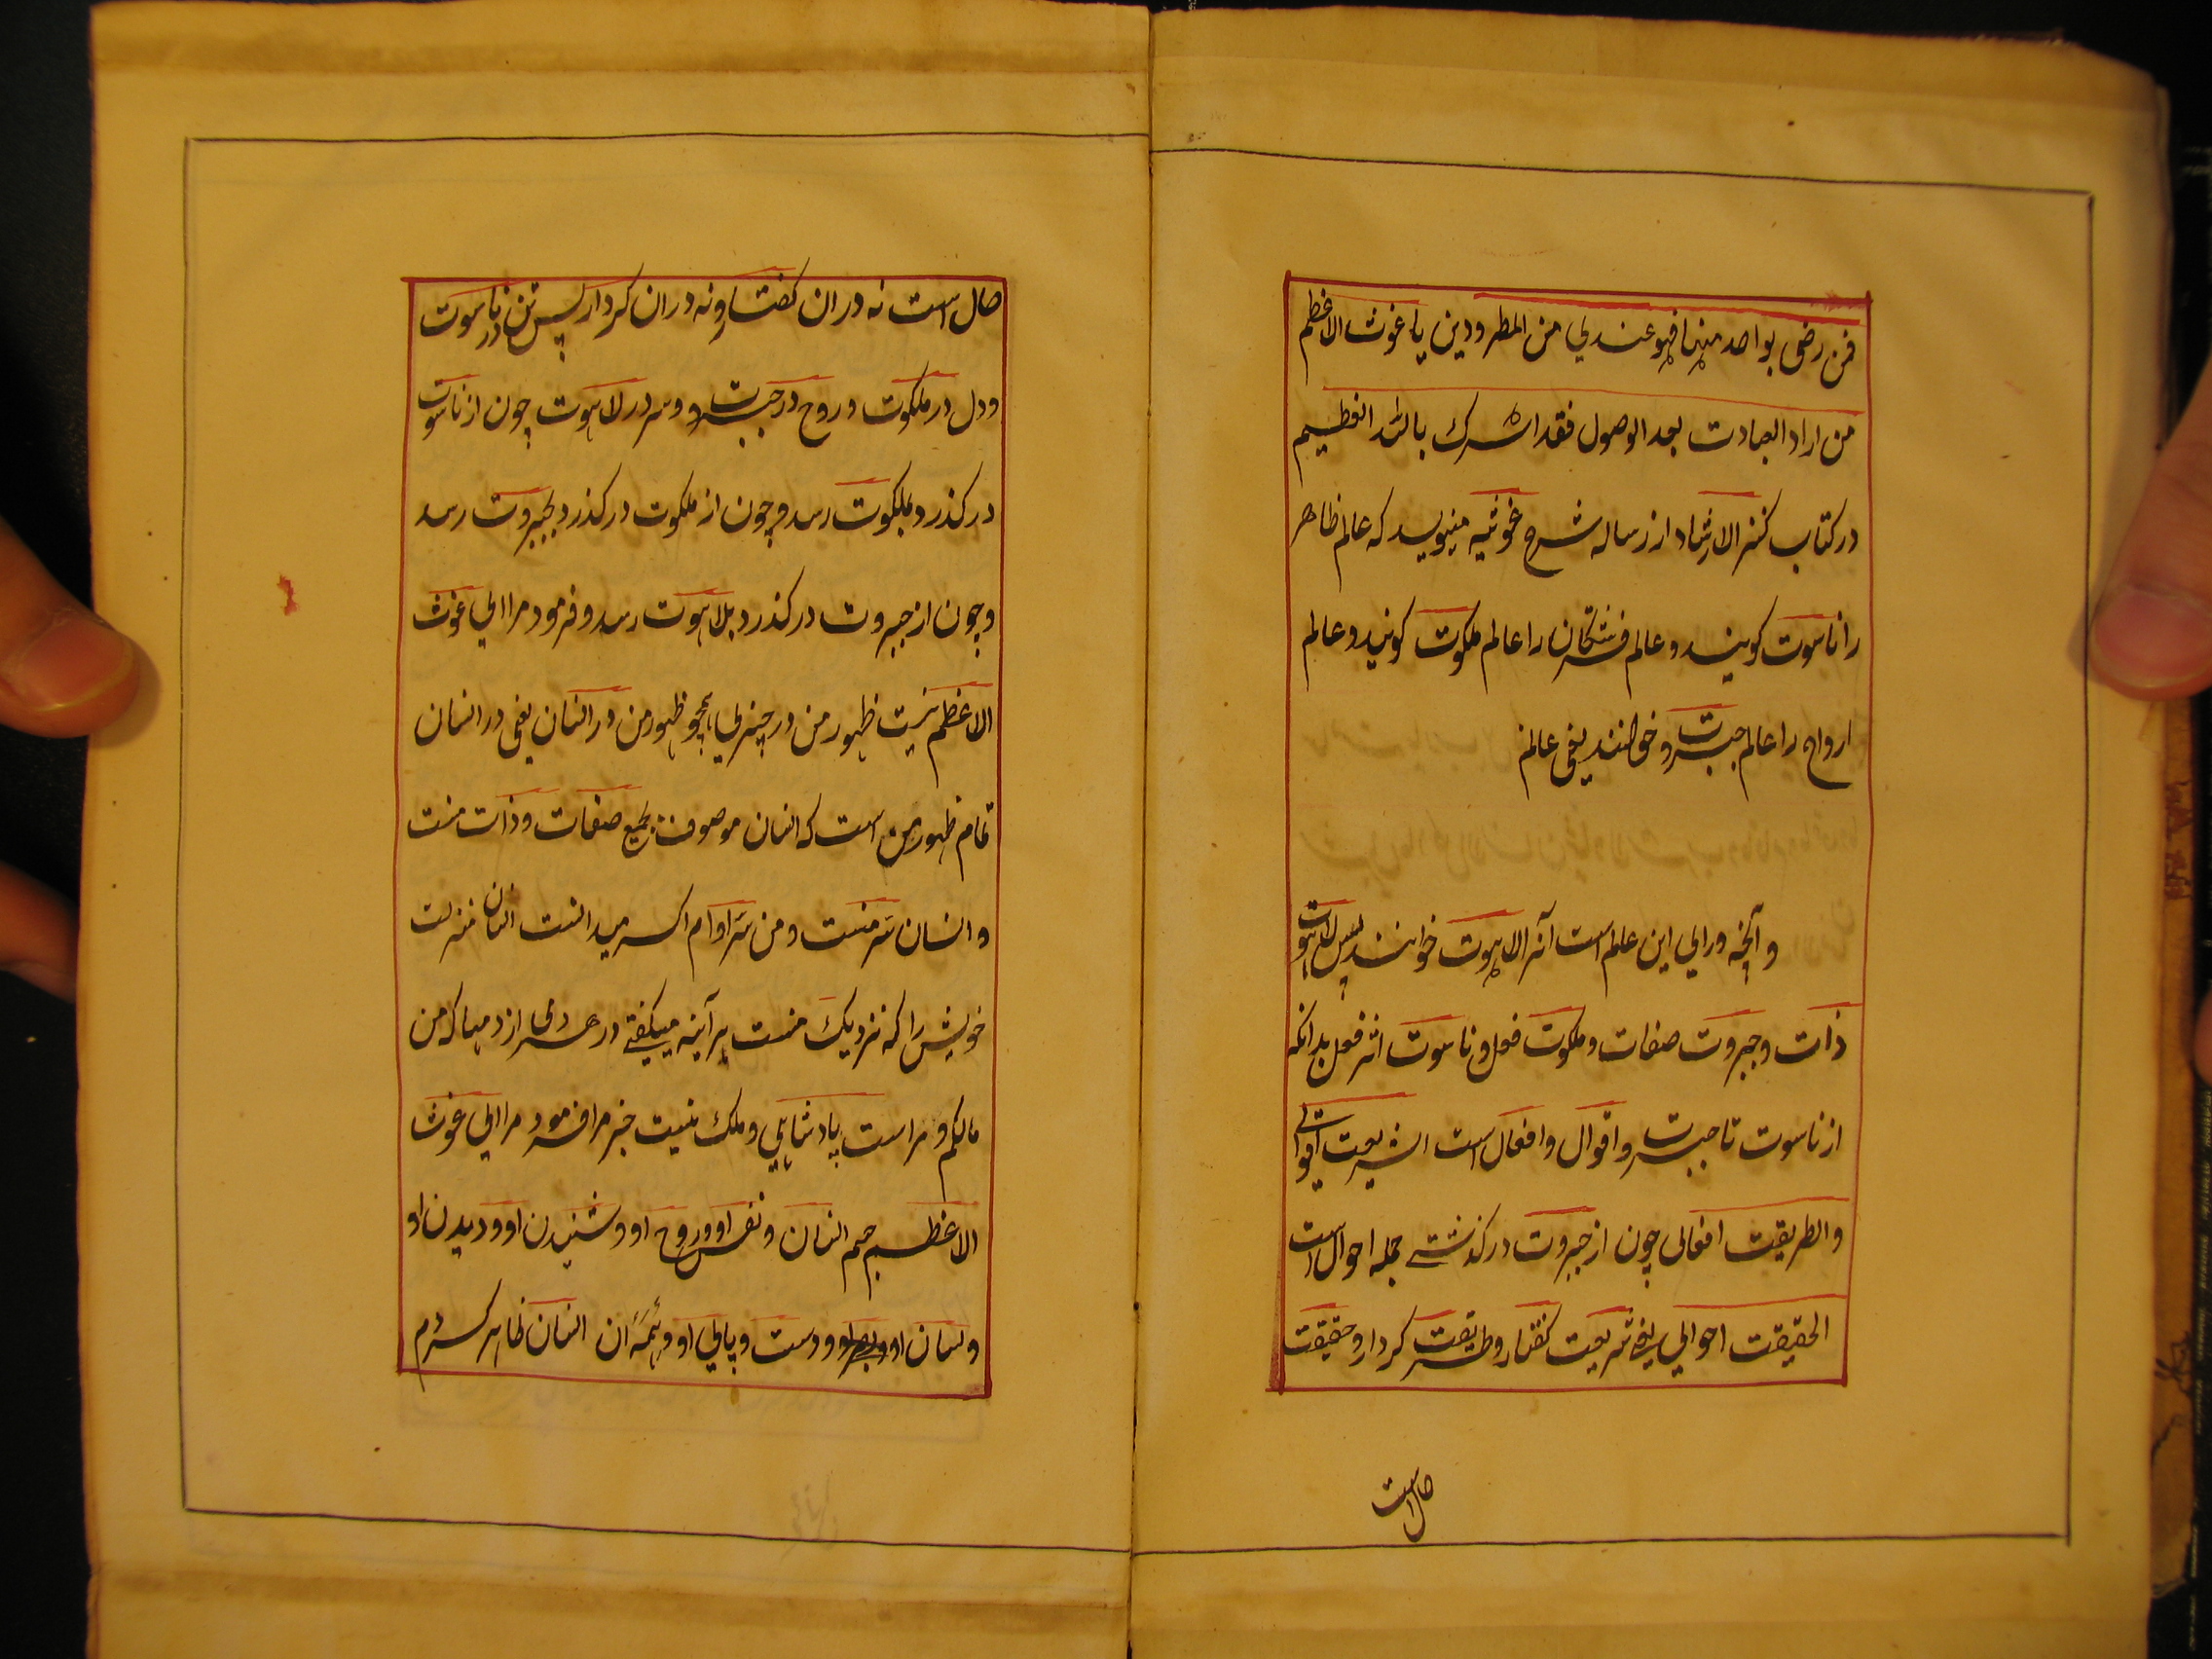 فمن رضی بواحد منها فهو عندی من المطرودین یا غوث الاعظم
من اراد العبادت بعد الوصول فقد اشرک بالله العظیم
در کتاب کنز الارشاد از رساله شرح غوثیه مینویسد که عالم ظاهر
را ناسوت کویند و عالم فرشتکان را عالم ملکوت کویند و عالم
ارواح را عالم جبروت خوانند یعنی عالم
و آنچه ورای این عالم است آنرا لاهوت خوانند پس لاهوت
ذات و جبروت صفات و ملکوت فعل و ناسوت اثر فعل بدانکه
از ناسوت تا جبروت اقوال و افعال است الشریعت اقوالی
والطریقت افعالی چون از جبروت درکذشتے جمله احوال است
الحقیقت احوالی یعنے شریعت کفتار و طریقت کردار و حقیقت
حال است
حال است نه دران کفتار و نه دران کردار پس تن در ناسوت
و دل در ملکوت و روح در جبروت و سر در لاهوت چون از ناسوت
درکذرد بملکوت رسد و چون از ملکوت درکذرد بجبروت رسد
و چون از جبروت درکذرد بلاهوت رسد و فرمود مرا ای غوث
الاعظم نیست ظهور من در چیزی همچو ظهور من در انسان یعنی در انسان
تمام ظهور من است که انسان موصوف بجمیع صفات و ذات منست
و انسان سر منست و من سر او ام اکر میدانست انسان منزلت
خویش را که نزدیک منست هر آینه میکفتے در هر دمی از دمها که من
مالکم و مراست پادشاهی و ملک نیست جز مرا فرمود مرا ای غوث
الاعظم جسم انسان و نفس او و روح او و شنیدن او و دیدن او
و لسان او و دست و پای او و همه آن انسان ظاهر کردم